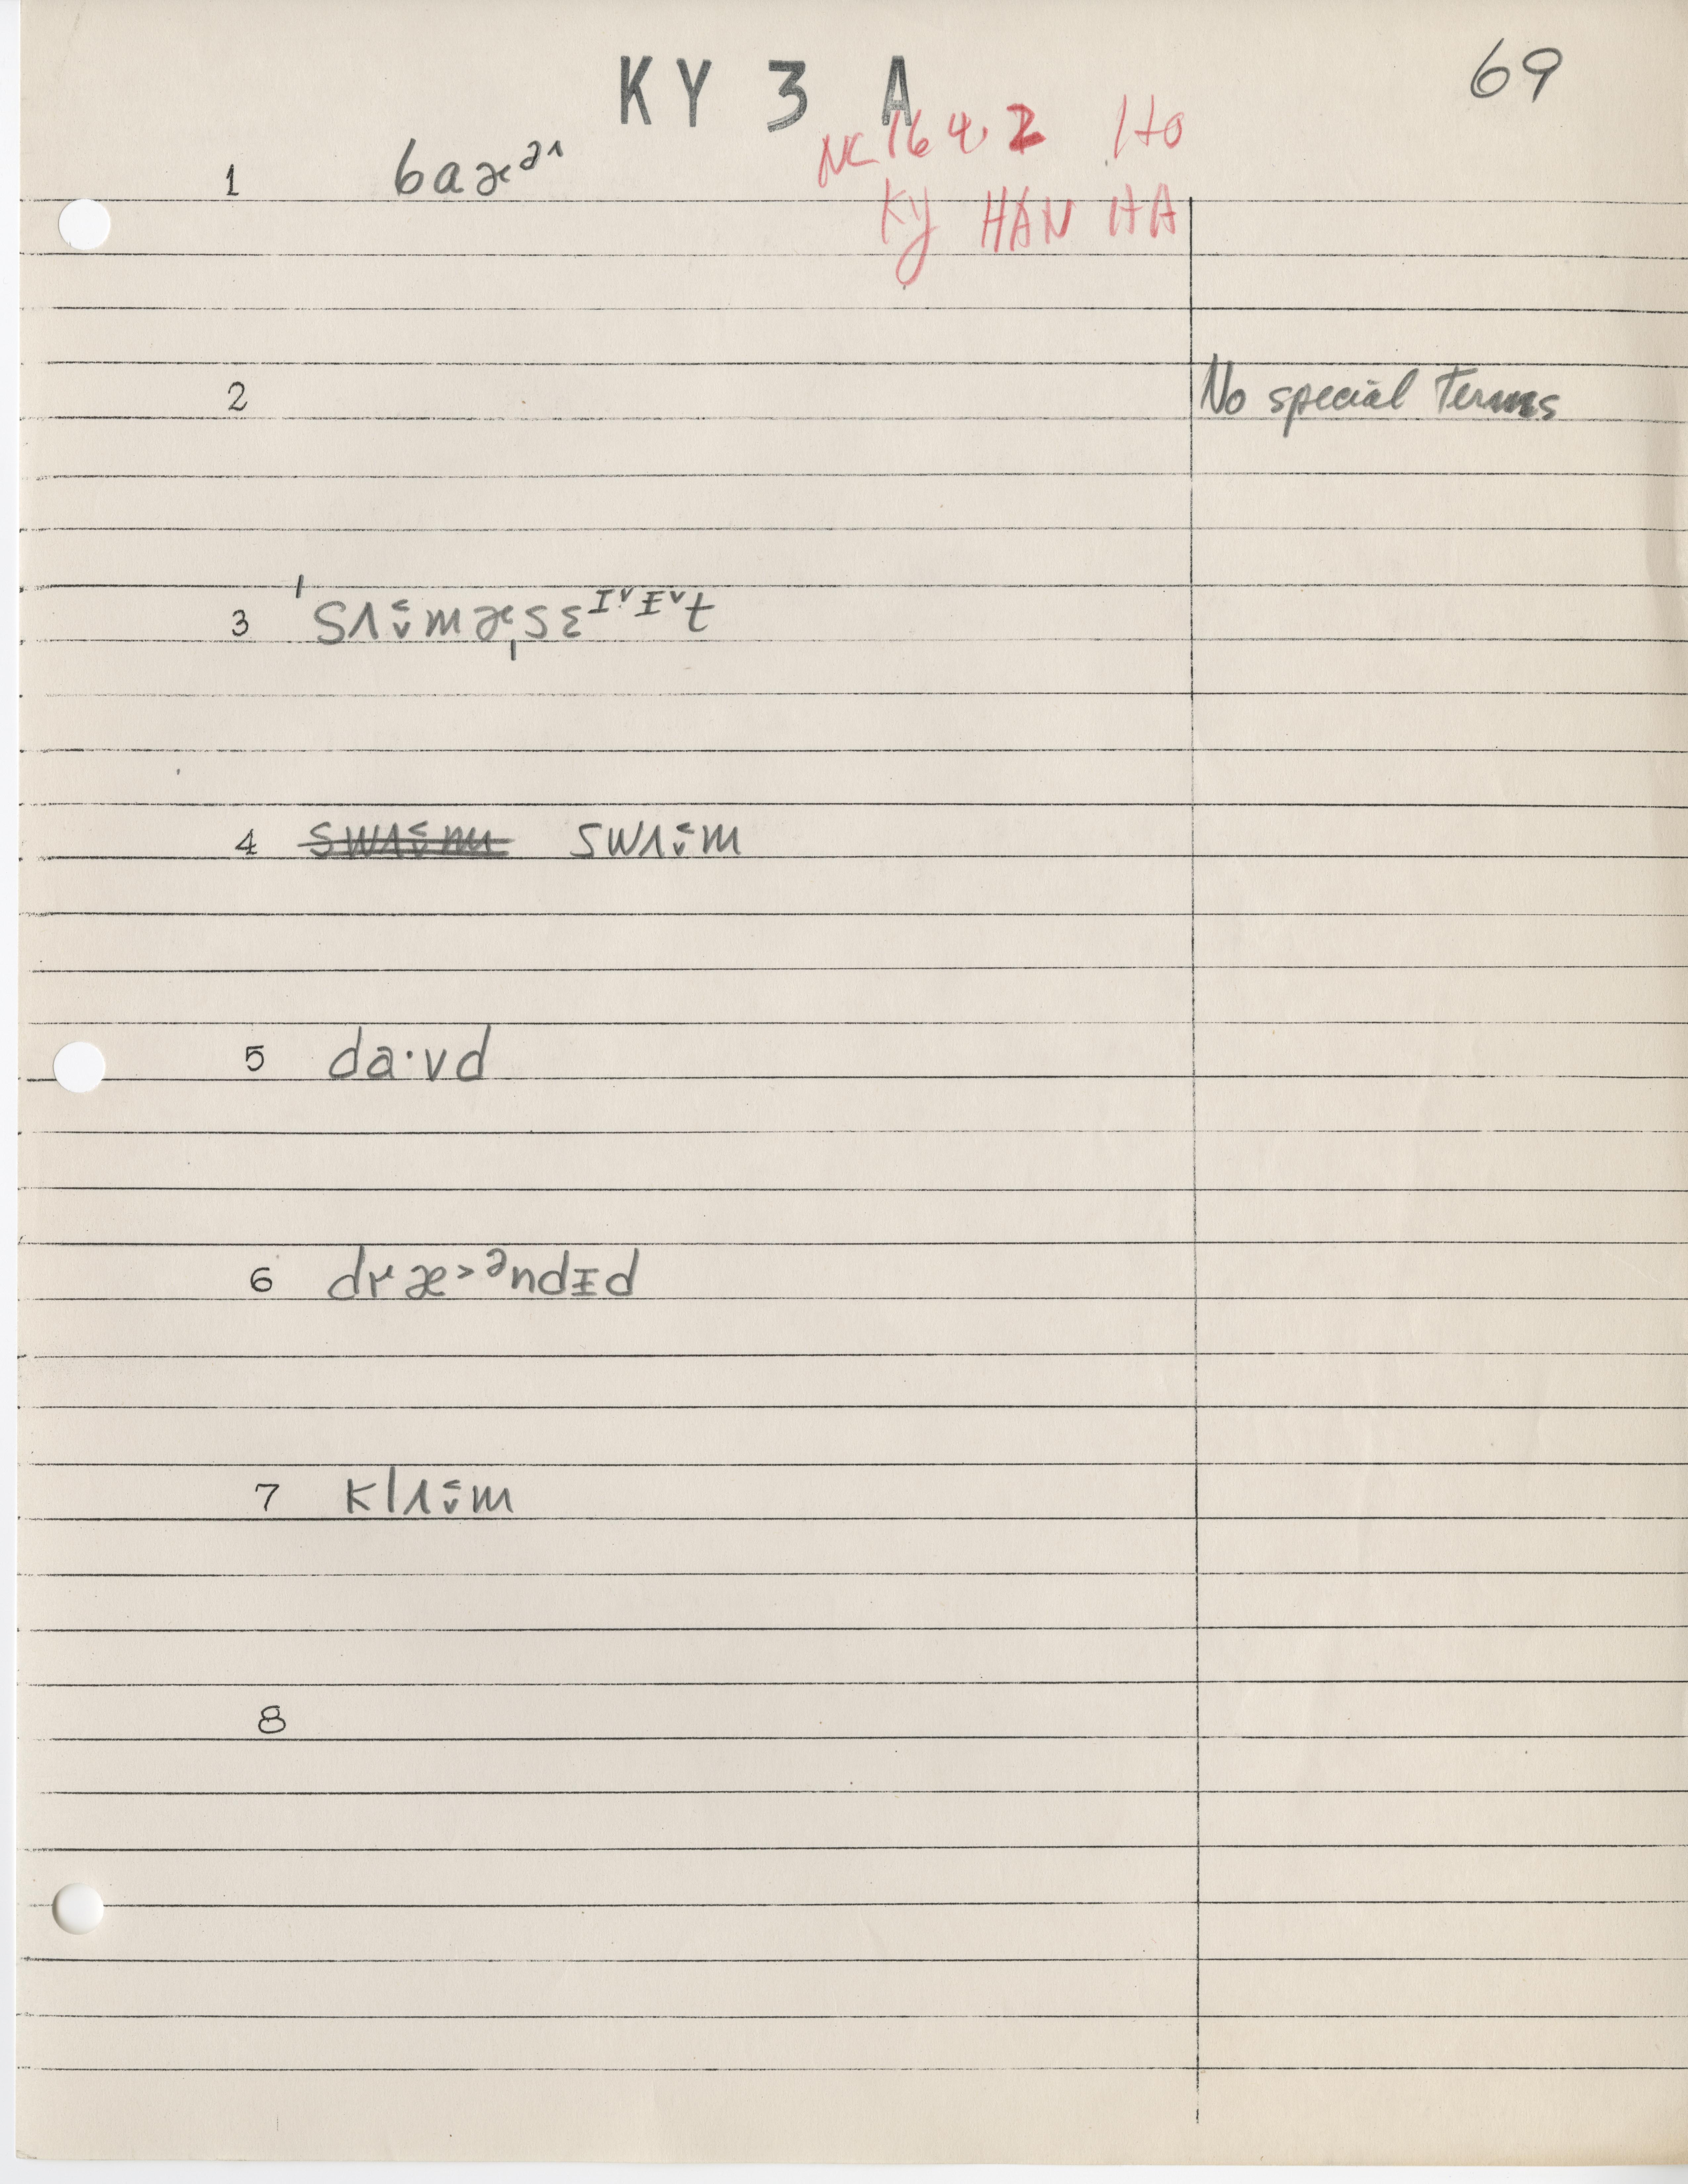 KY 3 A
69
NC 16 4. 2 Ho
KY HAN HA
1 baɚᵊ^
2 No special Terms
3 ˈsʌ˂̬mɚˌsɛᴵ˅ᵻ˅t
4 swʌ˂̬m swʌ˂̬m
5 da·vd
6 dræ˃ᵊndᵻd
7 klʌ˂̬m
8